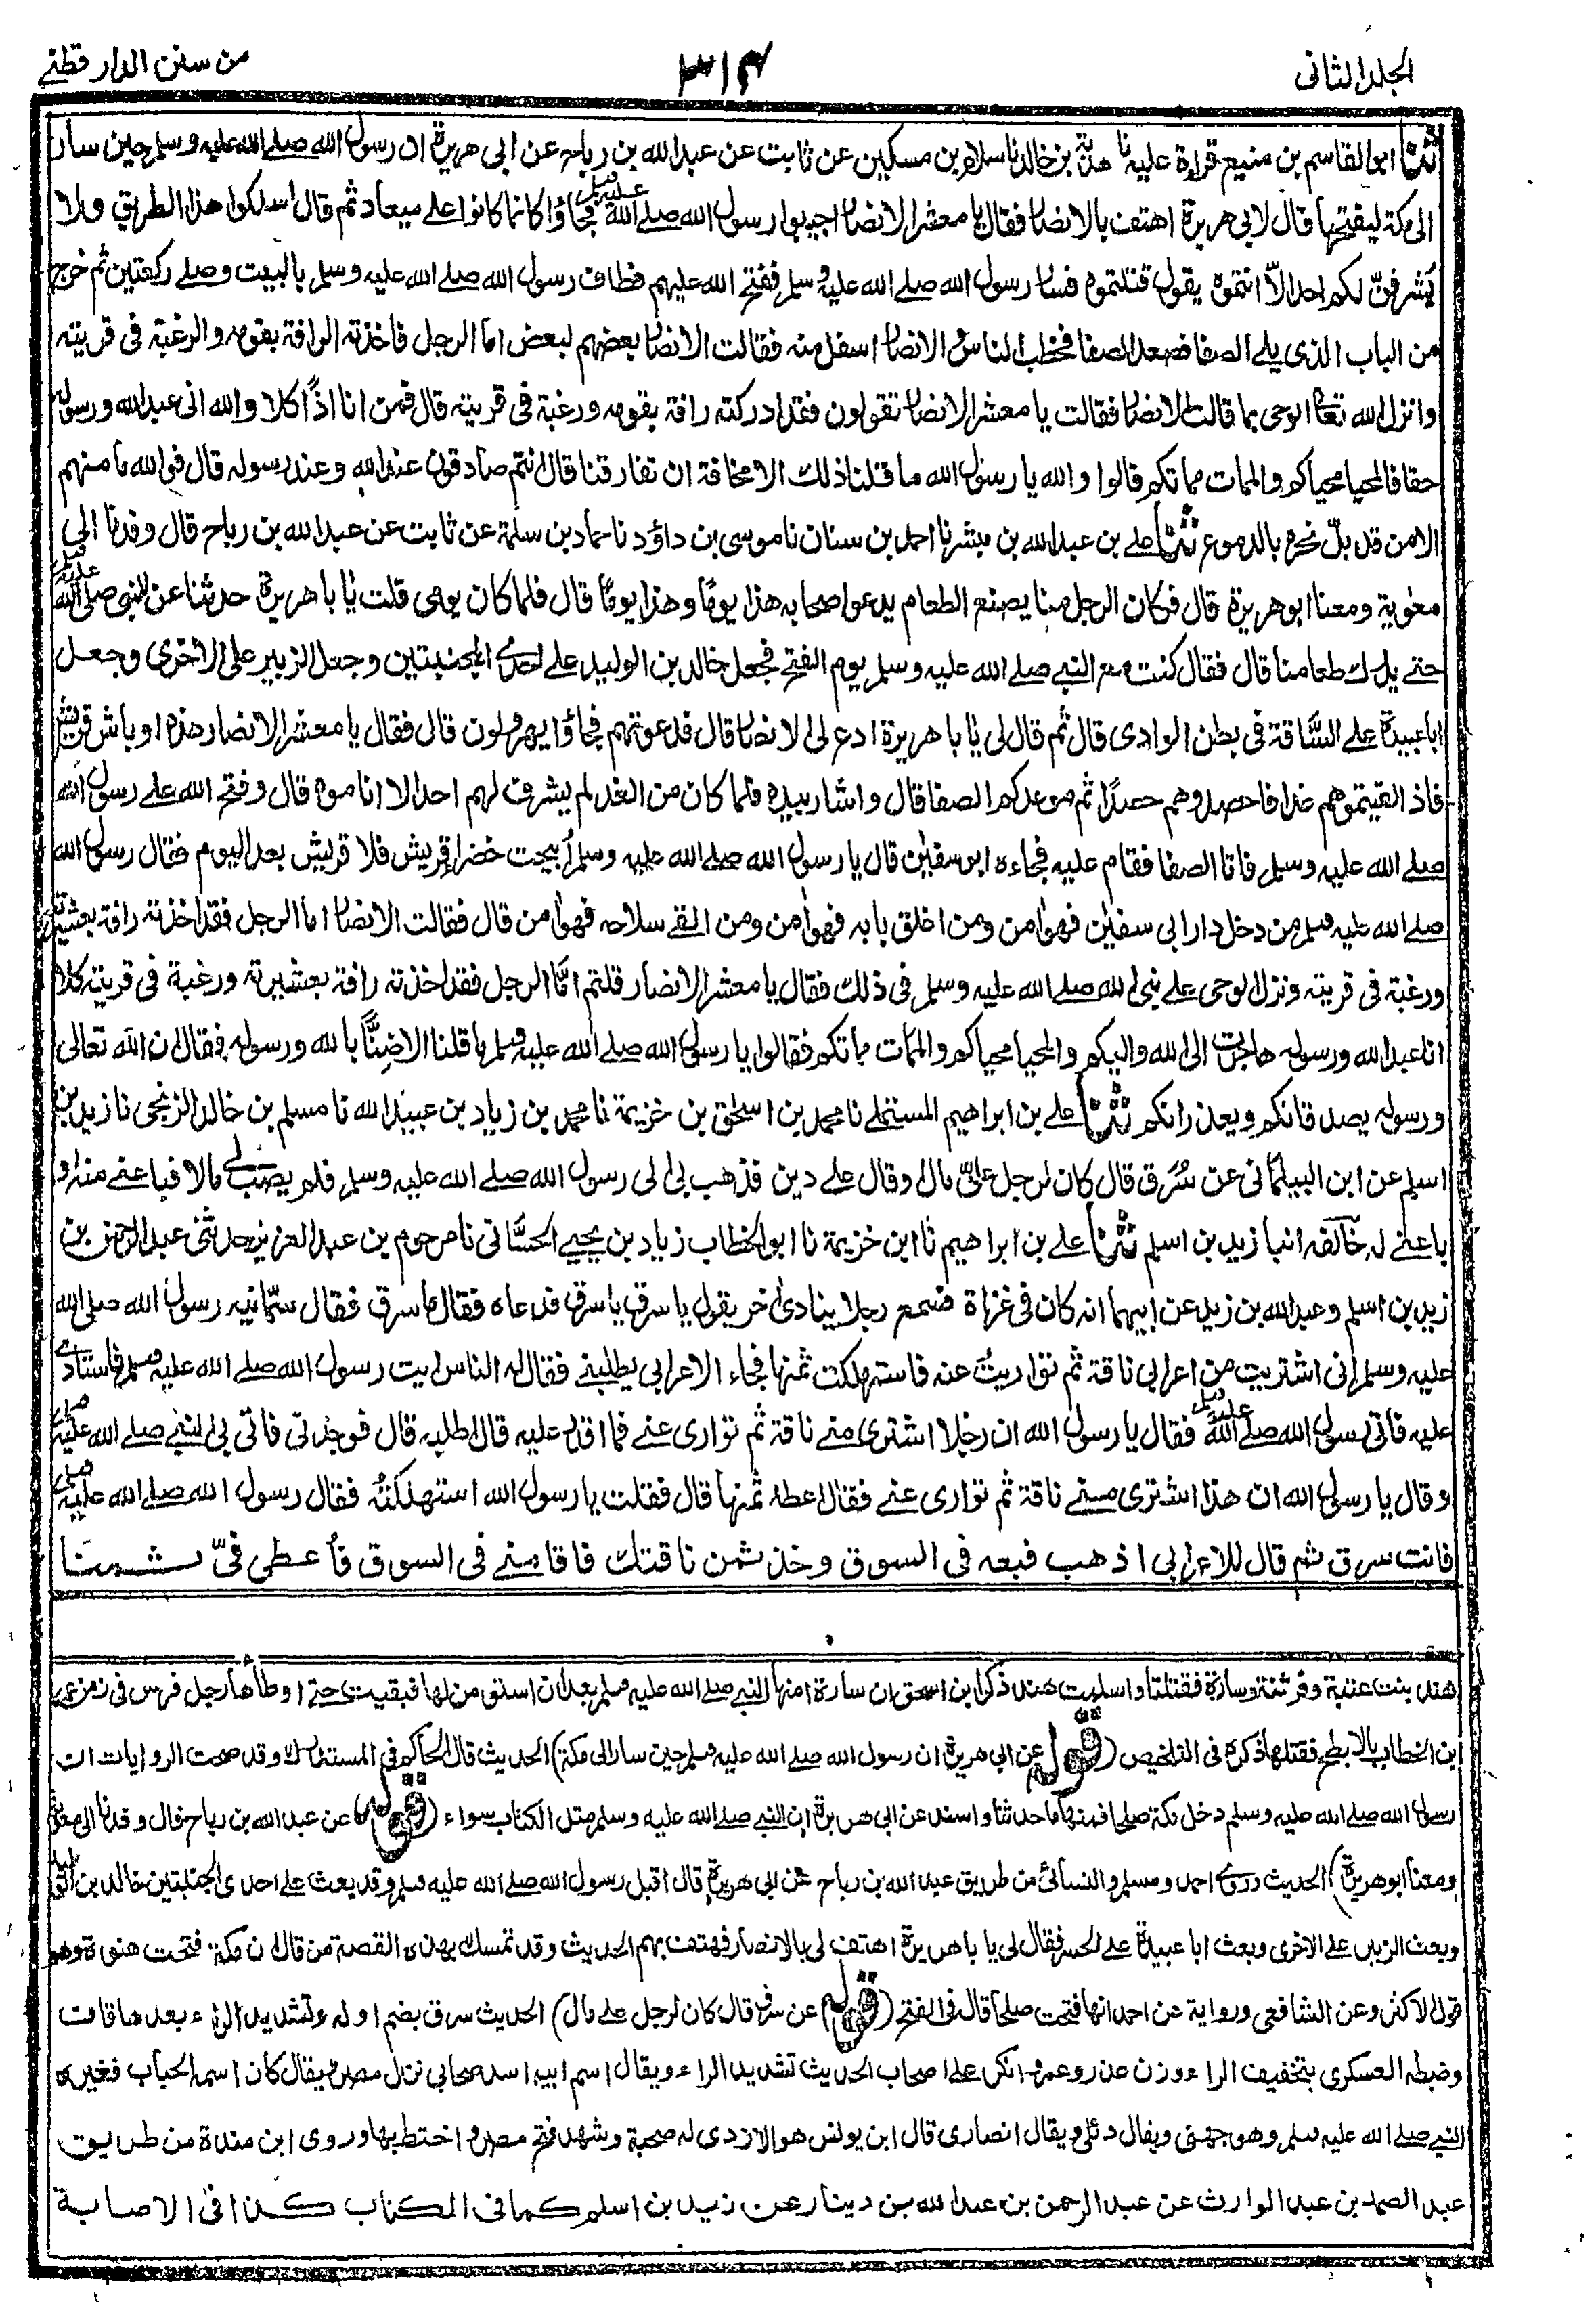 الجلد الثانى
٣١٤
من سنن الدار قطنے
ثنا ابو القاسم بن منيع قراءة عليه نا هدبة بن خالد نا سلام بن مسكين عن ثابت عن عبد الله بن رباح عن ابى هريرة ان رسول الله صلے الله عليه وسلم حين سار
الى مكة ليفتحها قال لابى هريرة اهتف بالانصار فقال يا معشر الانصار اجيبوا رسول الله صلے الله عليه وسلم فجاؤا كانما كانوا على ميعاد ثم قال اسلكوا هذا الطريق ولا
يُشرفنّ لكم احد الّا انتموه يقول قتلتموه فسار رسول الله صلے الله عليه وسلم ففتح الله عليهم فطاف رسول الله صلے الله عليه وسلم بالبيت وصلے ركعتين ثم خرج
من الباب الذى يلے الصفا فصعد الصفا فخطب الناس والانصار اسفل منه فقالت الانصار بعضهم لبعض اما الرجل فاخذته الرافة بقومه والرغبة فى قريته
وانزل الله تعالى الوحى بما قالت الانصار فقالت يا معشر الانصار تقولون فقد ادركته رافة بقومه ورغبة فى قريته قال فمن انا اذاً كلا والله انى عبد الله ورسوله
حقا فالمحيا محياكم والممات مماتكم قالوا والله يا رسول الله ما قلنا ذلك الا مخافة ان تفارقنا قال انتم صادقون عند الله وعند رسوله قال فو الله ما منهم
الا من قد بلّ نحره بالدموع ثنا علے بن عبد الله بن مبشر نا احمد بن سنان نا موسى بن داؤد نا حماد بن سلمة عن ثابت عن عبد الله بن رباح قال وفدنا الى
معٰوية ومعنا ابو هريرة قال فكان الرجل منا يصنع الطعام يدعو اصحابه هذا يومًا وهذا يومًا قال فلما كان يومى قلت يا ابا هريرة حدثنا عن النبى صلى الله عليه وسلم
حتے يدرك طعامنا قال فقال كنت مع النبے صلے الله عليه وسلم يوم الفتح فجعل خالد بن الوليد علے احدى المجنبتين وجعل الزبير على الاخرى وجعل
ابا عبيدة علے السَّاقة فى بطن الوادى قال ثم قال لى يا ابا هريرة ادع لى الانصار قال فدعوتهم فجاؤا يهرولون قال فقال يا معشر الانصار هذه اوباش قريش
فاذا لقيتموهم غدا فاحصدوهم حصدًا ثم موعدكم الصفا قال واشار بيده فلما كان من الغد لم يشرف لهم احد الا اناموه قال وفتح الله على رسول الله
صلے الله عليه وسلم فاتا الصفا فقام عليه فجاءه ابو سفيٰن قال يا رسول الله صلے الله عليه وسلم اُبيحت خضراء قريش فلا قريش بعد اليوم فقال رسول الله
صلے الله عليه وسلم من دخل دار ابى سفيٰن فهو اٰمن ومن اغلق بابه فهو اٰمن ومن القے سلاحه فهو اٰمن قال فقالت الانصار اما الرجل فقد اخذته رافة بعشيرته
ورغبة فى قريته ونزل الوحى على نبى الله صلے الله عليه وسلم فى ذلك فقال يا معشر الانصار قلتم امّا الرجل فقد اخذته رافة بعشيرته ورغبة فى قريته كلا
انا عبد الله ورسوله هاجرت الى الله واليكم والمحيا محياكم والممات مماتكم فقالوا يا رسول الله صلے الله عليه وسلم ما قلنا الا ضِنًّا بالله ورسوله فقال ان الله تعالى
ورسوله يصدقانكم ويعذرانكم ثنا علے بن ابراهيم المستملے نا محمد بن اسحٰق بن خزيمة نا محمد بن زياد بن عبيد الله نا مسلم بن خالد الزنجى نا زيد بن
اسلم عن ابن البيلمانى عن سُرَّق قال كان لرجل علىّ مال او قال علے دين فذهب بى الى رسول الله صلے الله عليه وسلم فلم يصب لى مالا فباعنے منه او
باعنے له خالفه ابنا زيد بن اسلم ثنا علے بن ابراهيم نا ابن خزيمة نا ابو الخطاب زياد بن يحيے الحسَّانى نا مرحوم بن عبد العزيز حدثنى عبد الرحمٰن بن
زيد بن اسلم وعبد الله بن زيد عن ابيهما انه كان فى غزاة فسمع رجلا ينادى اٰخر يقول يا سرق يا سرق فدعاه فقال ما سرق فقال سمّانيه رسول الله صلى الله
عليه وسلم انى اشتريت من اعرابى ناقة ثم تواريتُ عنه فاستهلكت ثمنها فجاء الاعرابى يطلبنے فقال له الناس ايت رسول الله صلے الله عليه وسلم فاستادى
عليه فاتى رسول الله صلے الله عليه وسلم فقال يا رسول الله ان رجلا اشترى منے ناقة ثم توارى عنے فما اقدر عليه قال اطلبه قال فوجدنى فاتى بى النبے صلے الله عليه وسلم
وقال يا رسول الله ان هذا اشترى منے ناقة ثم توارى عنے فقال اعطه ثمنها قال فقلت يا رسول الله استهلكتُه فقال رسول الله صلے الله عليه وسلم
فانت سرق ثم قال للاعرابى اذهب فبعه فى السوق وخذ ثمن ناقتك فاقامنے فى السوق فاُعطى فىّ ثمنا
هند بنت عتبة وفرتنة وسارة فقتلتا واسلمت هند ذكر ابن اسحق ان سارة امنها النبے صلے الله عليه وسلم بعد ان استؤمن لها فبقيت حتے اوطاها رجل فرس فى زمن عمر
ابن الخطاب بالابطح فقتلها ذكره فى التلخيص (قوله عن ابى هريرة ان رسول الله صلے الله عليه وسلم حين سار الى مكة) الحديث قال الحاكم فى المستدرك وقد صحت الروايات ان
رسول الله صلے الله عليه وسلم دخل مكة صلحا فمنها ما حدثنا واسند عن ابى هريرة ان النبے صلے الله عليه وسلم مثل الكتاب سواء (قوله عن عبد الله بن رباح قال وفدنا الى معٰوية
ومعنا ابو هريرة) الحديث روى احمد ومسلم والنسائى من طريق عبد الله بن رباح عن ابى هريرة قال اقبل رسول الله صلے الله عليه وسلم وقد بعث علے احدى المجنبتين خالد بن الوليد
وبعث الزبير على الاخرى وبعث ابا عبيدة علے الحسر فقال لى يا ابا هريرة اهتف لى بالانصار فهتف بهم الحديث وقد تمسك بهذه القصة من قال ان مكة فتحت عنوة وهو
قول الاكثر وعن الشافعى ورواية عن احمد انها فتحت صلحا قال فى الفتح (قوله عن سرق قال كان لرجل على مال) الحديث سرق بضم اوله وتشديد الراء بعدها قاف
وضبطه العسكرى بتخفيف الراء وزن غدر وعمر وانكر على اصحاب الحديث تشديد الراء ويقال اسم ابيه اسد صحابى نزل مصر ويقال كان اسمه الحباب فغيره
النبے صلے الله عليه وسلم وهو جهنى ويقال دئلى ويقال انصارى قال ابن يونس هو الازدى له صحبة وشهد فتح مصر واختط بها وروى ابن مندة من طريق
عبد الصمد بن عبد الوارث عن عبد الرحمن بن عبد الله بن دينار عن زيد بن اسلم كما فى الكتاب كذا فى الاصابة